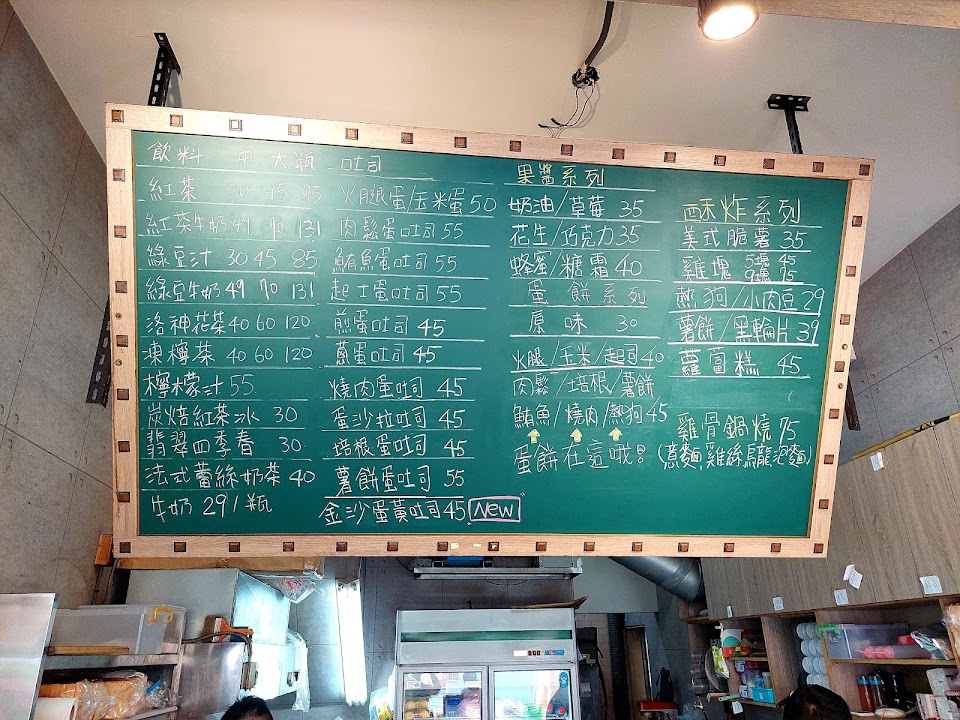 飲料 中 大 瓶
紅茶 30 45 85
紅茶牛奶 49 70 131
綠豆汁 30 45 85
綠豆牛奶 49 70 131
洛神花茶 40 60 120
凍檸茶 40 60 120
檸檬汁 55
炭焙紅茶冰 30
翡翠四季春 30
法式蕾絲奶茶 40
牛奶 29/瓶
吐司
火腿蛋/玉米蛋 50
肉鬆蛋吐司 55
鮪魚蛋吐司 55
起士蛋吐司 55
煎蛋吐司 45
蔥蛋吐司 45
燒肉蛋吐司 45
蛋沙拉吐司 45
培根蛋吐司 45
薯餅蛋吐司 55
金沙蛋黃吐司 45 New
果醬系列
奶油/草莓 35
花生/巧克力 35
蜂蜜/糖霜 40
蛋餅系列
原味 30
火腿/玉米/起司 40
肉鬆/培根/薯餅
鮪魚/燒肉/熱狗 45
蛋餅在這哦!
酥炸系列
美式脆薯 35
雞塊 5塊 45
9塊 75
熱狗/小肉豆 29
薯餅/黑輪片 39
蘿蔔糕 45
雞骨鍋燒 75
(意麵,雞絲,烏龍,泡麵)